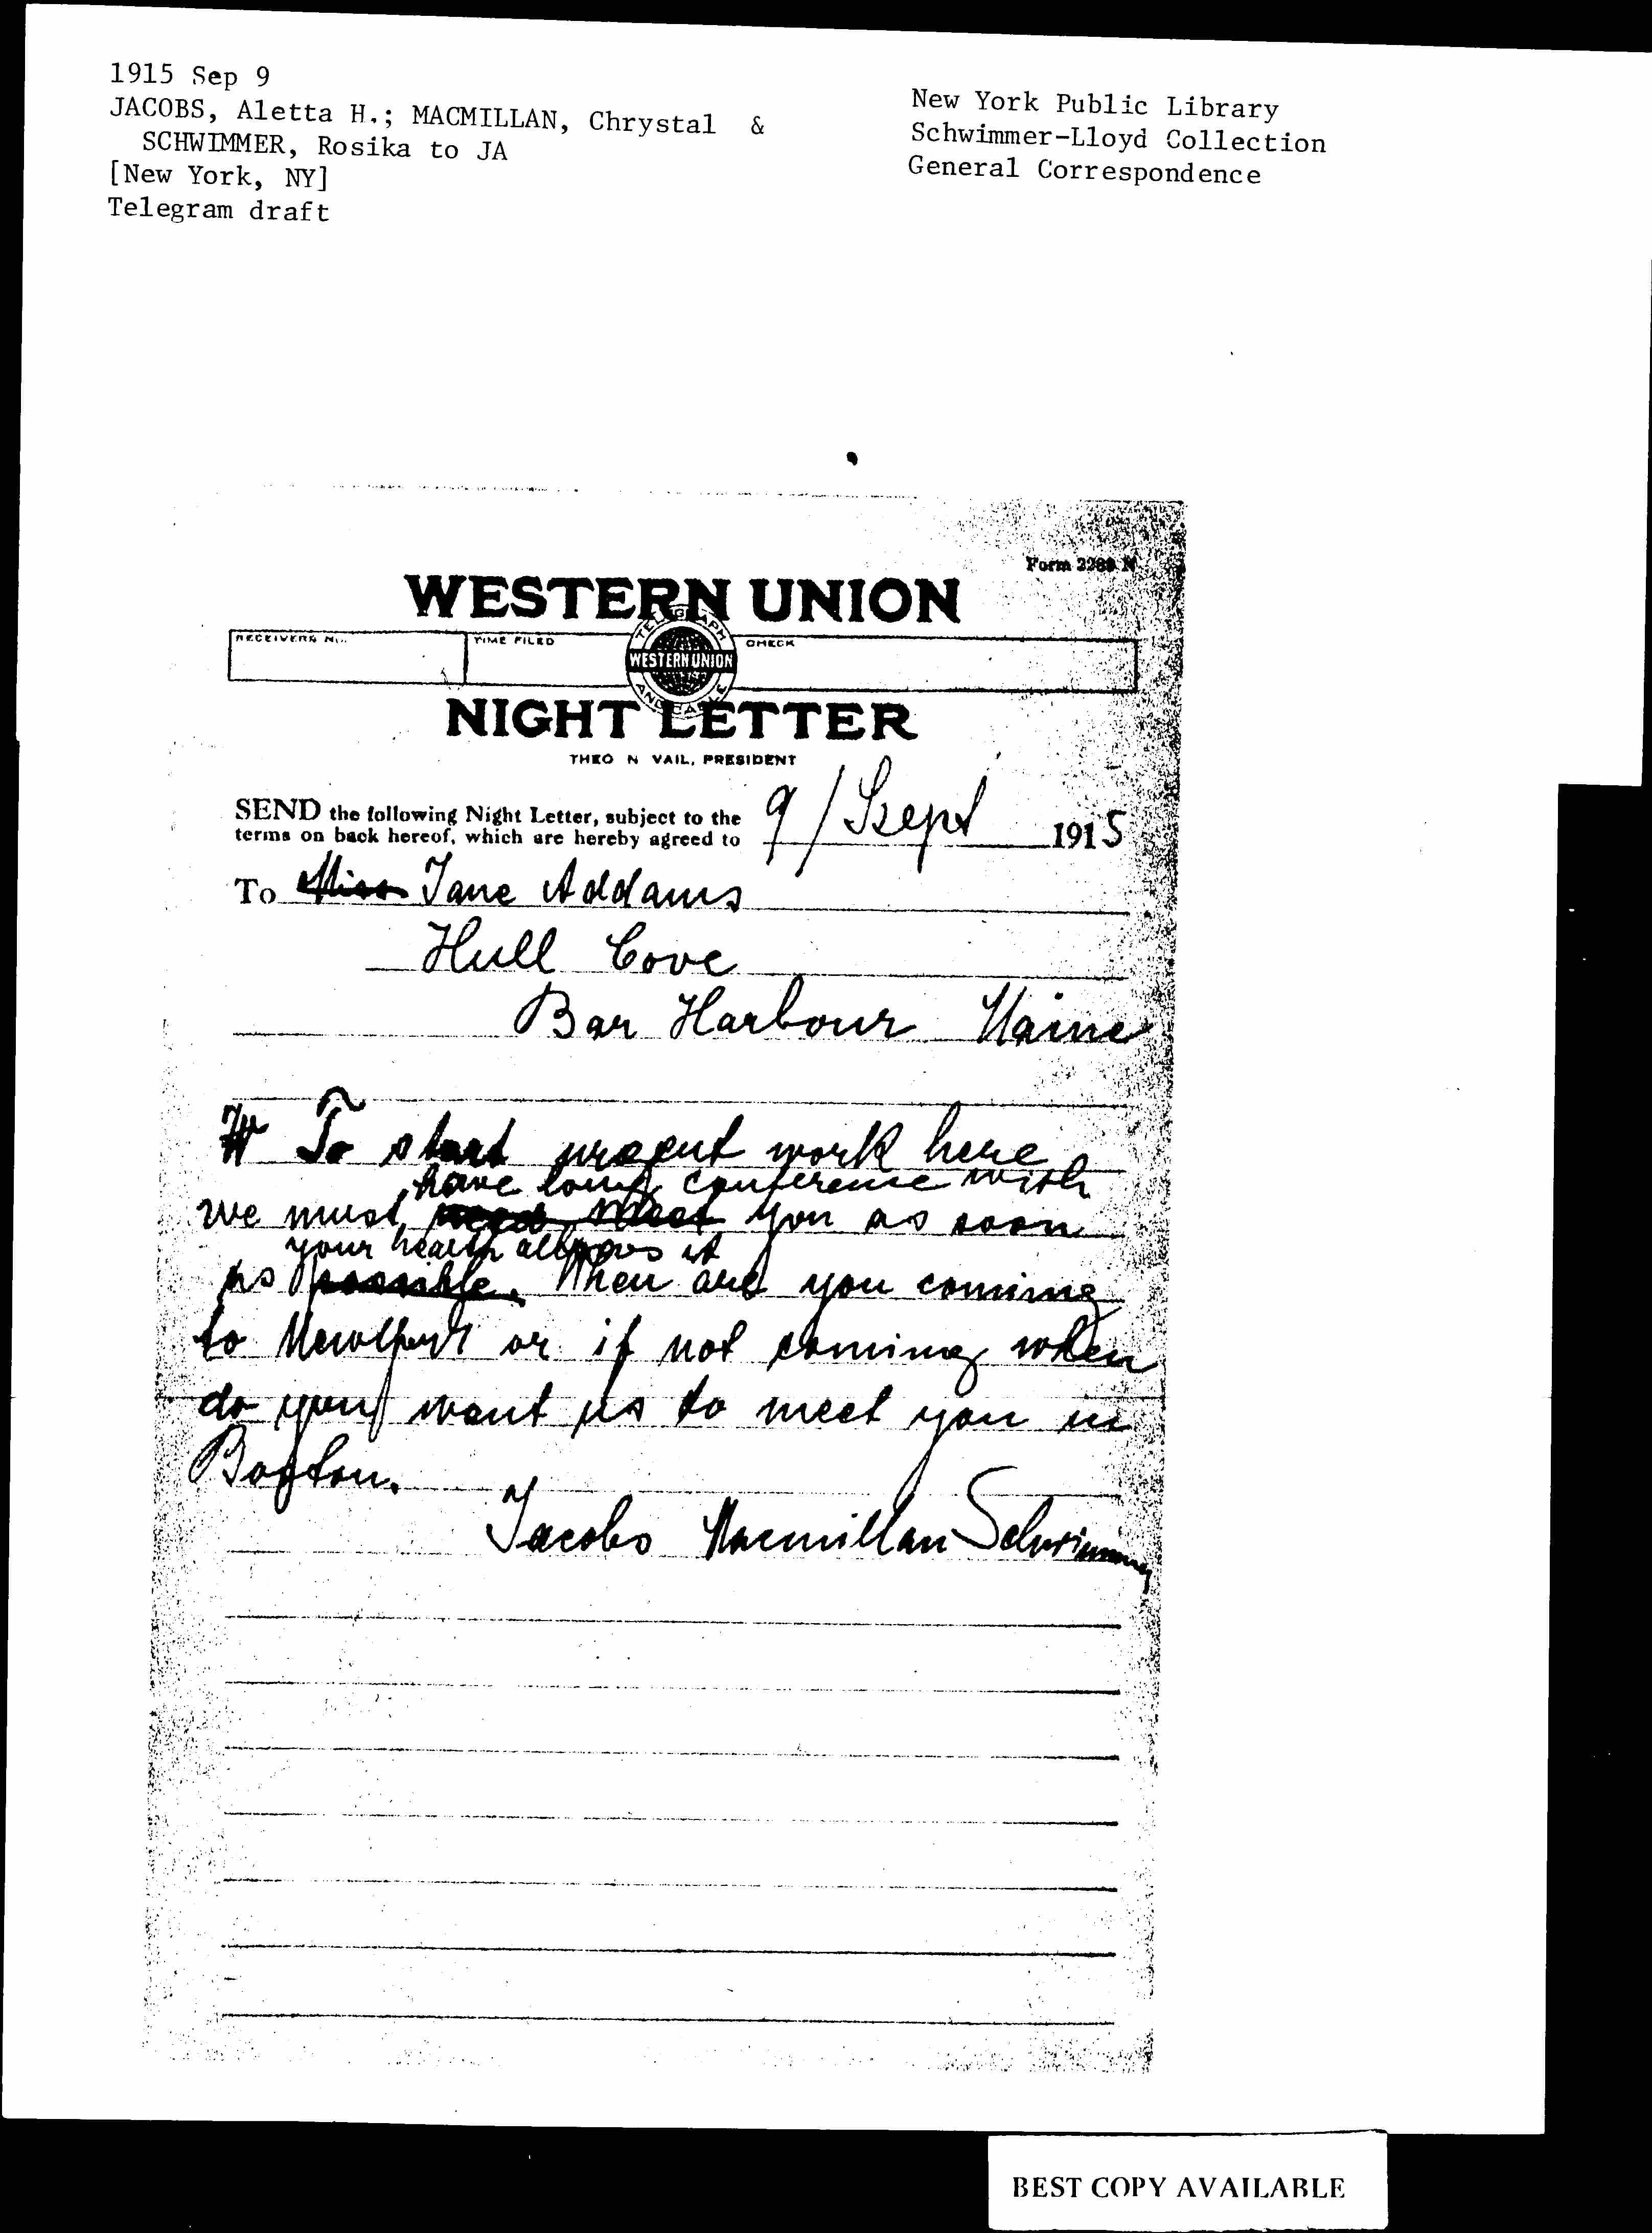 1915 Sep 9
JACOBS, Aletta H.; MACMILLAN, Chrystal &
SCHWIMMER, Rosika to JA
[New York, NY]
Telegram draft
New York Public Library
Schwimmer-Lloyd Collection
General Correspondence
Form 2289 N
WESTERN UNION
RECEIVER'S No. TIME FILED CHECK
TELEGRAPH
WESTERN UNION
AND CABLE
NIGHT LETTER
THEO N VAIL, PRESIDENT
SEND the following Night Letter, subject to the
terms on back hereof, which are hereby agreed to
9/Szept 1915
To Miss Jane Addams
Hull Cove
Bar Harbour Maine
W To start urgent work here
have long conference with
we must need meet you as soon
your health allows it
as possible. When are you coming
to Newport or if not coming when
do you want us to meet you in
Boston.
Jacobs Macmillan Schwimmer
BEST COPY AVAILABLE